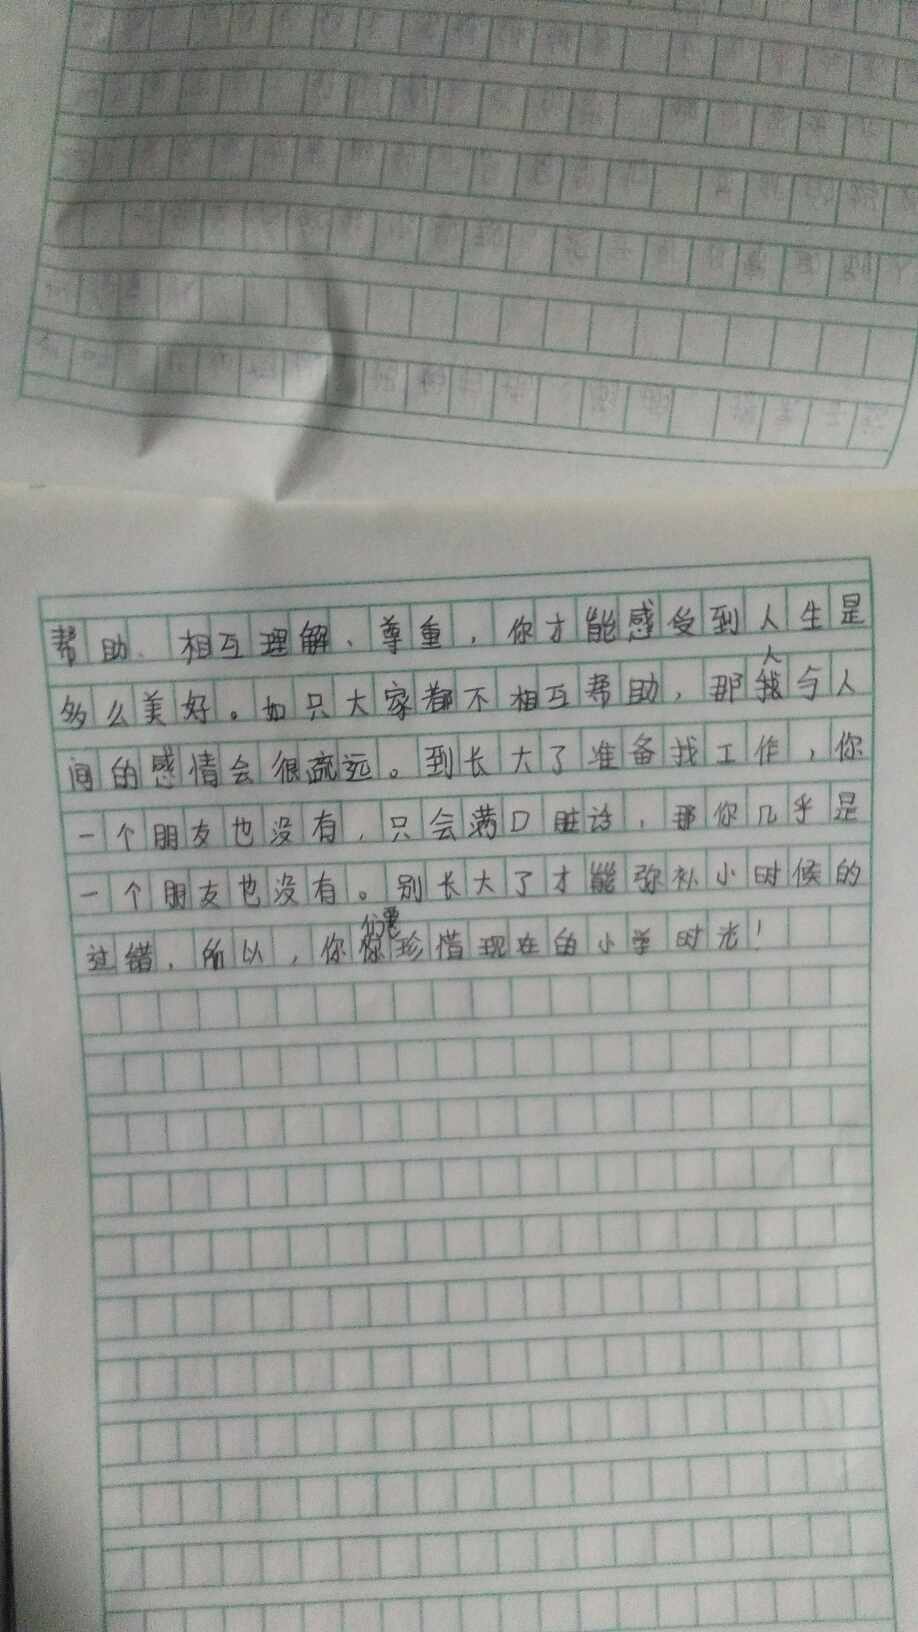 帮助、相互理解、尊重，你才能感受到人生是
多么美好。如只大家都不相互帮助，那人与人
间的感情会很疏远。到长大了准备找工作，你
一个朋友也没有，只会满口脏话，那你几乎是
一个朋友也没有。别长大了才能弥补小时候的
过错，所以，你们要珍惜现在的小学时光！